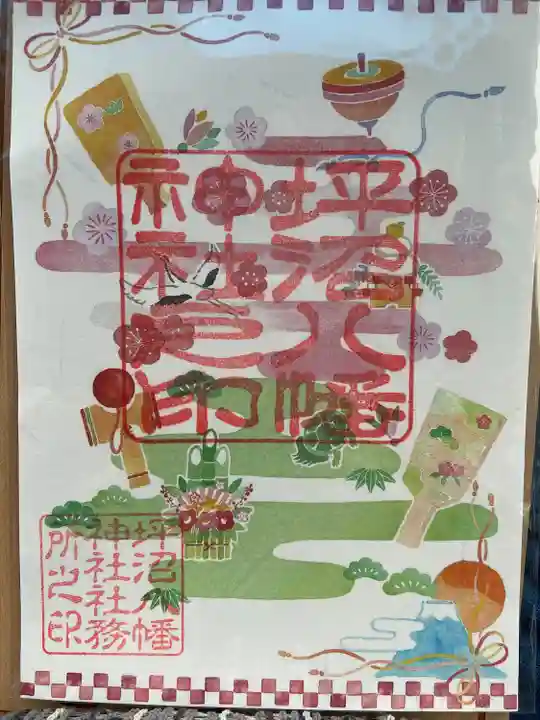 坪沼八幡
神社之印
坪沼八幡
神社社務
所之印